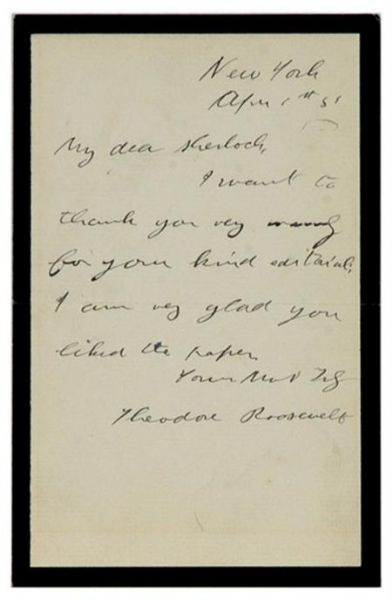 New York
Apr 1st 81
My dear Sherlock,
I want to
thank you very
for your kind editorial;
I am very glad you
liked the paper.
Yours
Theodore Roosevelt